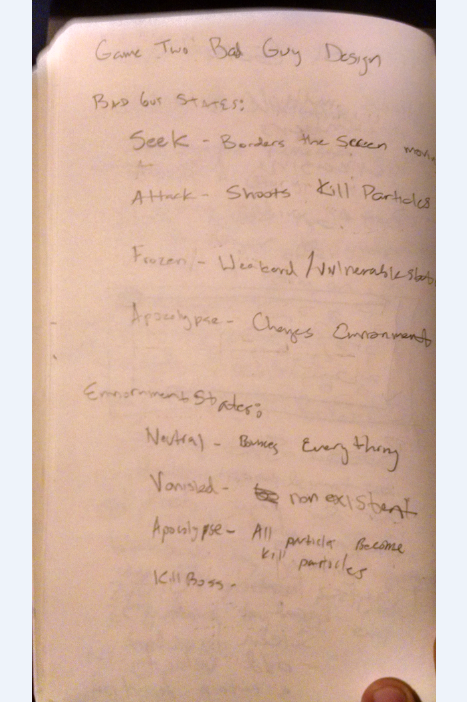 Game Two Bad Guy Design
Bad Guy States:
Seek - Borders the Screen
Attack - Shoots Kill Particles
Frozen - /Vulnerable
Apocalypse - Changes Environment
Environment States:
Neutral - Bounces Everything
Vanished - non existent
Apocalypse - All particles Become
Kill particles
Kill Boss -